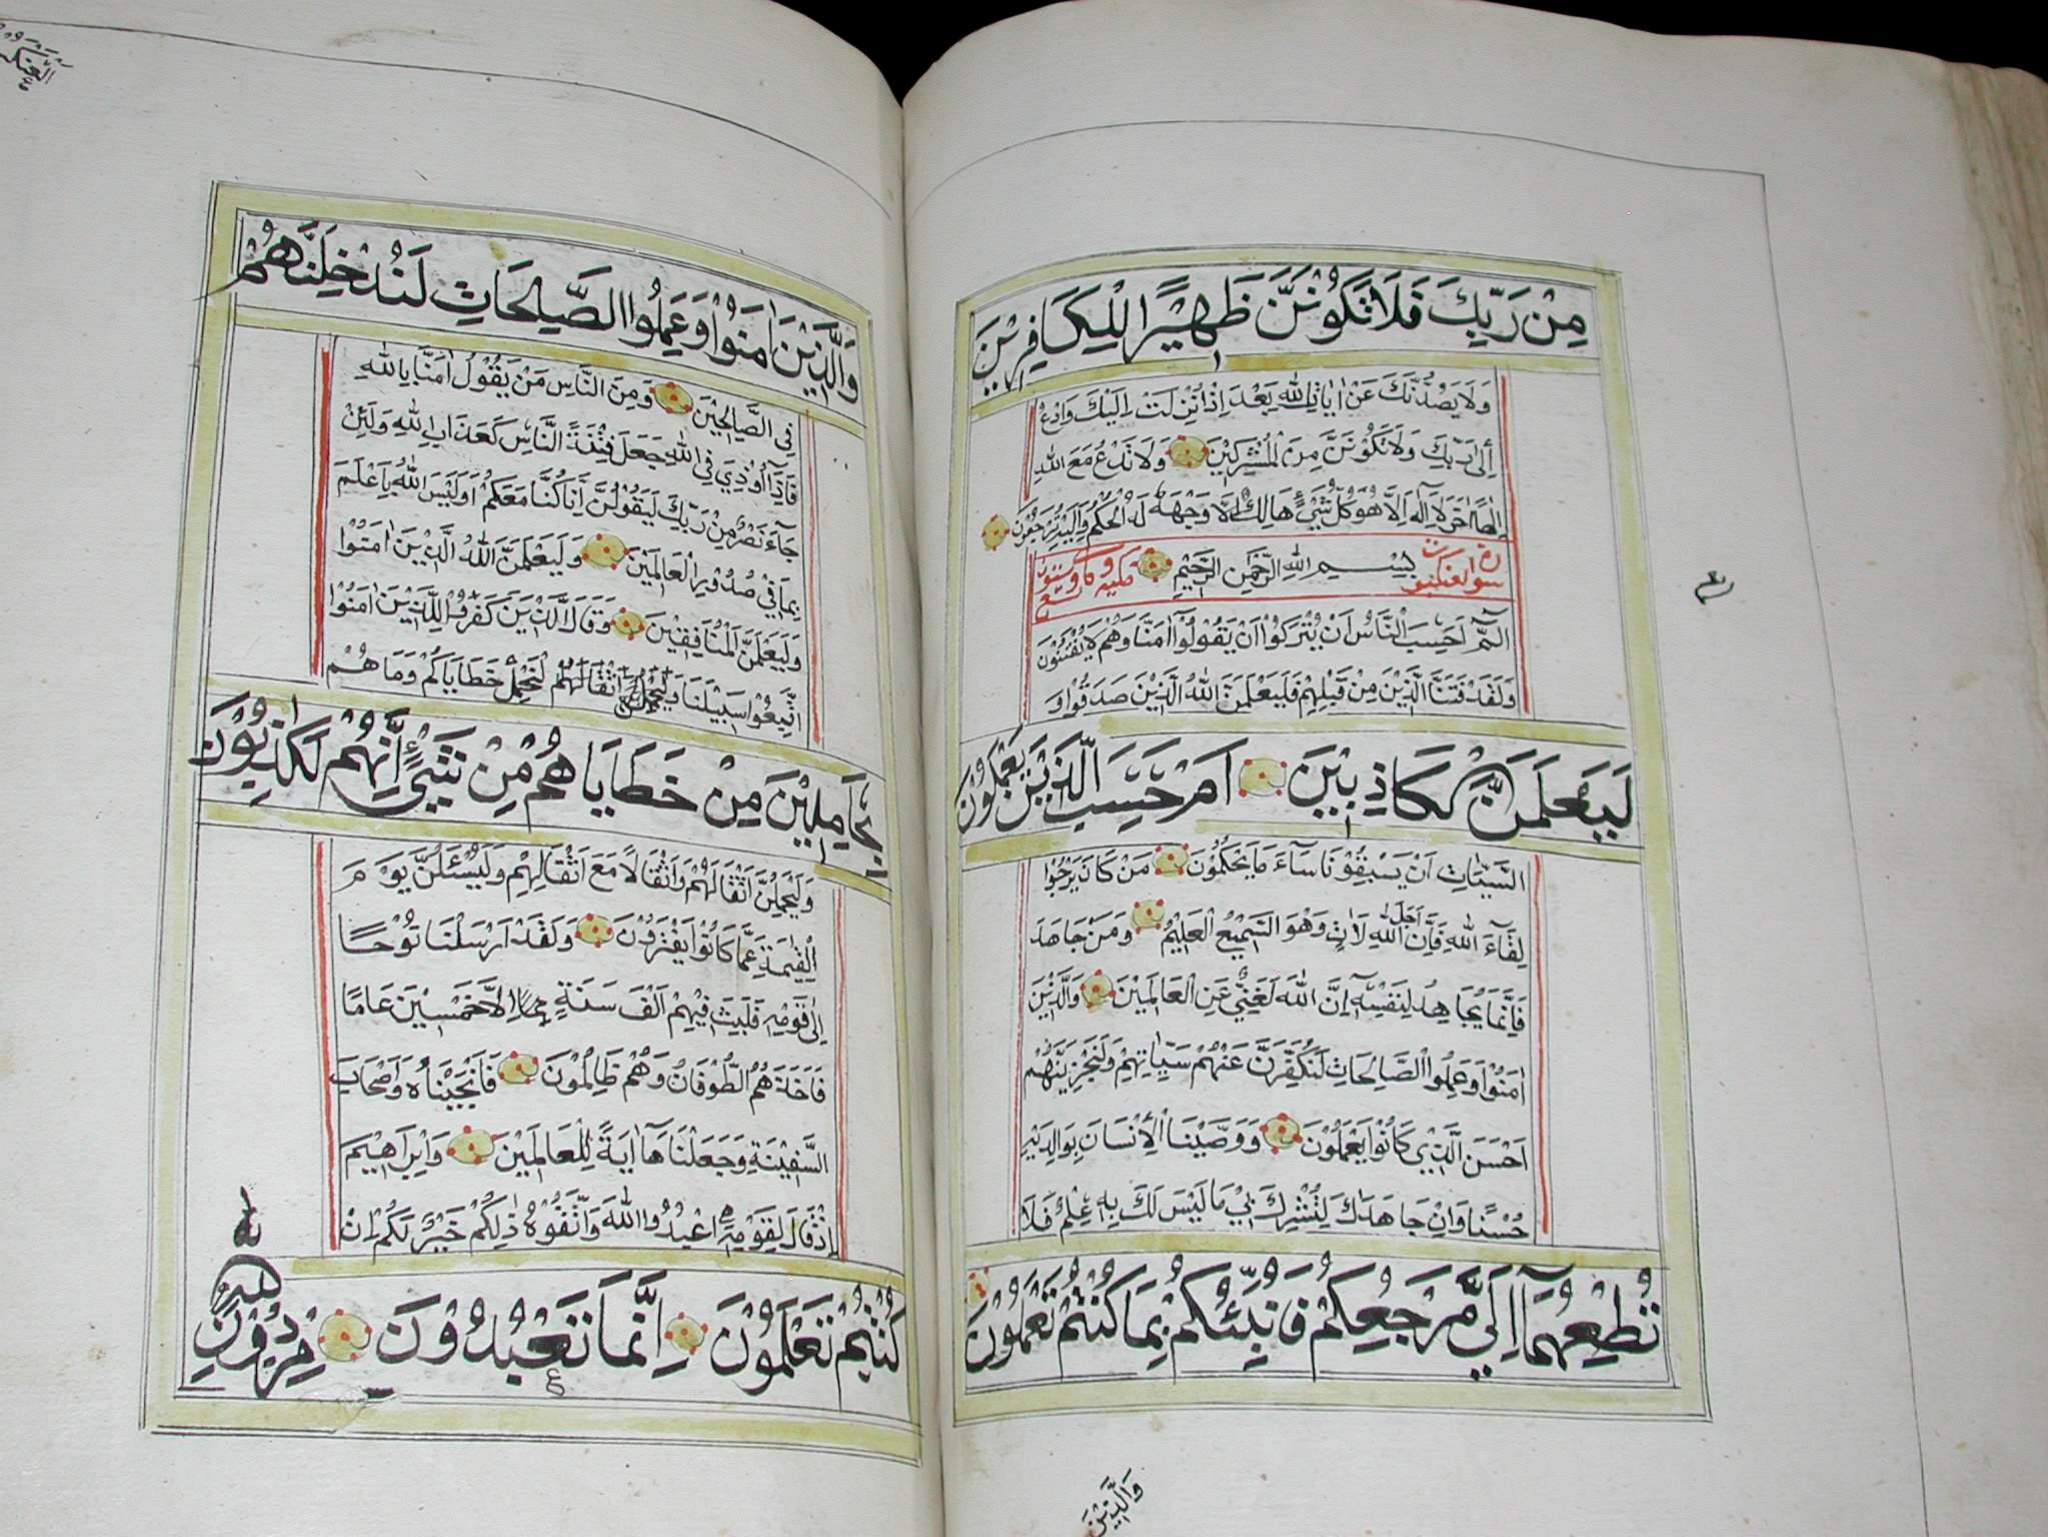 مِنْ رَبِّكَ فَلَا تَكُوْنَنَّ ظَهِيْرًا لِلْكَافِرِيْنَ
وَلَا يَصُدُّنَّكَ عَنْ اٰيَاتِ اللّٰهِ بَعْدَ اِذْ اُنْزِلَتْ اِلَيْكَ وَادْعُ
اِلٰى رَبِّكَ وَلَا تَكُوْنَنَّ مِنَ الْمُشْرِكِيْنَ وَلَا تَدْعُ مَعَ اللّٰهِ
اِلٰهًا اٰخَرَ لَا اِلٰهَ اِلَّا هُوَ كُلُّ شَيْءٍ هَالِكٌ اِلَّا وَجْهَهٗ لَهُ الْحُكْمُ وَاِلَيْهِ تُرْجَعُوْنَ
سورة العنكبوت بِسْمِ اللّٰهِ الرَّحْمٰنِ الرَّحِيْمِ مكية
الٓمّٓ اَحَسِبَ النَّاسُ اَنْ يُتْرَكُوْا اَنْ يَقُوْلُوْٓا اٰمَنَّا وَهُمْ لَا يُفْتَنُوْنَ
وَلَقَدْ فَتَنَّا الَّذِيْنَ مِنْ قَبْلِهِمْ فَلَيَعْلَمَنَّ اللّٰهُ الَّذِيْنَ صَدَقُوْا وَ
لَيَعْلَمَنَّ الْكَاذِبِيْنَ اَمْ حَسِبَ الَّذِيْنَ يَعْمَلُوْنَ
السَّيِّئَاتِ اَنْ يَسْبِقُوْنَا سَآءَ مَا يَحْكُمُوْنَ مَنْ كَانَ يَرْجُوْا
لِقَآءَ اللّٰهِ فَاِنَّ اَجَلَ اللّٰهِ لَاٰتٍ وَهُوَ السَّمِيْعُ الْعَلِيْمُ وَمَنْ جَاهَدَ
فَاِنَّمَا يُجَاهِدُ لِنَفْسِهٖ اِنَّ اللّٰهَ لَغَنِيٌّ عَنِ الْعَالَمِيْنَ وَالَّذِيْنَ
اٰمَنُوْا وَعَمِلُوا الصَّالِحَاتِ لَنُكَفِّرَنَّ عَنْهُمْ سَيِّاٰتِهِمْ وَلَنَجْزِيَنَّهُمْ
اَحْسَنَ الَّذِيْ كَانُوْا يَعْمَلُوْنَ وَوَصَّيْنَا الْاِنْسَانَ بِوَالِدَيْهِ
حُسْنًا وَاِنْ جَاهَدَاكَ لِتُشْرِكَ بِيْ مَا لَيْسَ لَكَ بِهٖ عِلْمٌ فَلَا
تُطِعْهُمَآ اِلَيَّ مَرْجِعُكُمْ فَاُنَبِّئُكُمْ بِمَا كُنْتُمْ تَعْمَلُوْنَ
وَالَّذِيْنَ
وَالَّذِيْنَ اٰمَنُوْا وَعَمِلُوا الصَّالِحَاتِ لَنُدْخِلَنَّهُمْ
فِي الصَّالِحِيْنَ وَمِنَ النَّاسِ مَنْ يَقُوْلُ اٰمَنَّا بِاللّٰهِ
فَاِذَآ اُوْذِيَ فِي اللّٰهِ جَعَلَ فِتْنَةَ النَّاسِ كَعَذَابِ اللّٰهِ وَلَئِنْ
جَآءَ نَصْرٌ مِنْ رَبِّكَ لَيَقُوْلُنَّ اِنَّا كُنَّا مَعَكُمْ اَوَلَيْسَ اللّٰهُ بِاَعْلَمَ
بِمَا فِيْ صُدُوْرِ الْعَالَمِيْنَ وَلَيَعْلَمَنَّ اللّٰهُ الَّذِيْنَ اٰمَنُوْا
وَلَيَعْلَمَنَّ الْمُنَافِقِيْنَ وَقَالَ الَّذِيْنَ كَفَرُوْا لِلَّذِيْنَ اٰمَنُوا
اتَّبِعُوْا سَبِيْلَنَا اَثْقَالَهُمْ لْنَحْمِلْ خَطَايَاكُمْ وَمَا هُمْ
بِحَامِلِيْنَ مِنْ خَطَايَاهُمْ مِنْ شَيْءٍ اِنَّهُمْ لَكَاذِبُوْنَ
وَلَيَحْمِلُنَّ اَثْقَالَهُمْ وَاَثْقَالًا مَعَ اَثْقَالِهِمْ وَلَيُسْئَلُنَّ يَوْمَ
الْقِيٰمَةِ عَمَّا كَانُوْا يَفْتَرُوْنَ وَلَقَدْ اَرْسَلْنَا نُوْحًا
اِلٰى قَوْمِهٖ فَلَبِثَ فِيْهِمْ اَلْفَ سَنَةٍ اِلَّا خَمْسِيْنَ عَامًا
فَاَخَذَهُمُ الطُّوْفَانُ وَهُمْ ظَالِمُوْنَ فَاَنْجَيْنَاهُ وَاَصْحَابَ
السَّفِيْنَةِ وَجَعَلْنَاهَآ اٰيَةً لِلْعَالَمِيْنَ وَاِبْرَاهِيْمَ
اِذْ قَالَ لِقَوْمِهِ اعْبُدُوا اللّٰهَ وَاتَّقُوْهُ ذٰلِكُمْ خَيْرٌ لَكُمْ اِنْ
كُنْتُمْ تَعْلَمُوْنَ اِنَّمَا تَعْبُدُوْنَ مِنْ دُوْنِ
اللّٰهِ